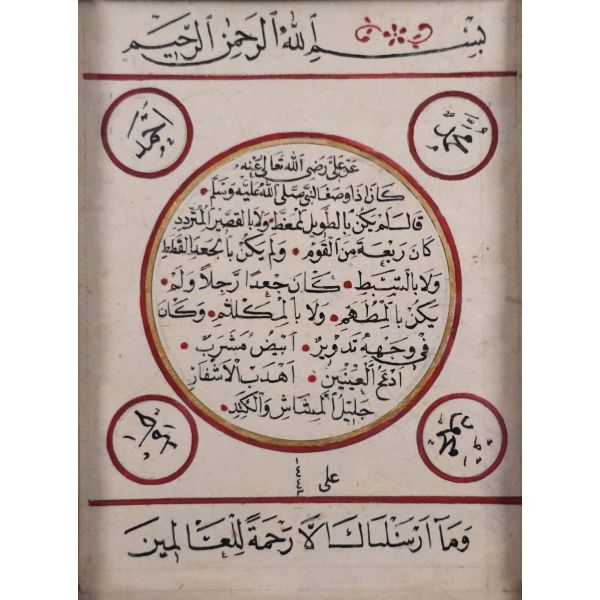 بسم الله الرحمن الرحيم
محمد
عن علي رضي الله تعالى عنه
كان اذا وصف النبي صلى الله عليه وسلم
قال لم يكن بالطويل الممغط ولا بالقصير المتردد
كان ربعة من القوم ولم يكن بالجعد القطط
ولا بالسبط كان جعدا رجلا ولم
يكن بالمطهم ولا بالمكلثم وكان
في وجهه تدوير ابيض مشرب
ادعج العينين اهدب الاشفار
جليل المشاش والكتد
علي
١٤٤٣
وما ارسلناك الا رحمة للعالمين